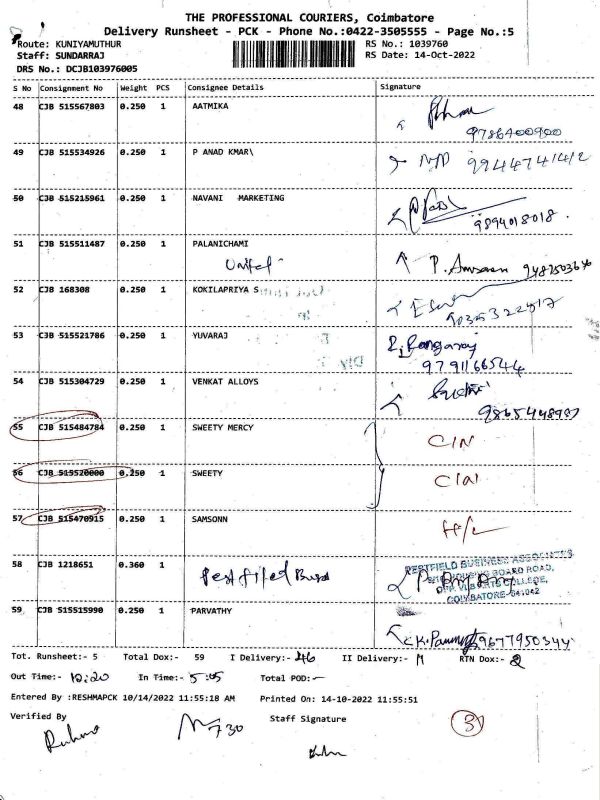 THE PROFESSIONAL COURIERS, Coimbatore
Delivery Runsheet - PCK - Phone No.:0422-3505555 - Page No.:5
Route: KUNIYAMUTHUR
RS No.: 1039760
Staff: SUNDARRAJ
RS Date: 14-Oct-2022
DRS No.: DCJB103976005
S No Consignment No Weight PCS Consignee Details Signature
48 CJB 515567803 0.250 1 AATMIKA
9786400900
49 CJB 515534926 0.250 1 P ANAD KMAR\
9944741412
50 CJB 515215961 0.250 1 NAVANI MARKETING
9894018018.
51 CJB 515511487 0.250 1 PALANICHAMI
United
52 CJB 168308 0.250 1 KOKILAPRIYA S
53 CJB 515521786 0.250 1 YUVARAJ
9791166544
54 CJB 515304729 0.250 1 VENKAT ALLOYS
55 CJB 515484784 0.250 1 SWEETY MERCY
56 CJB 515520000 0.250 1 SWEETY
57 CJB 515470915 0.250 1 SAMSONN
58 CJB 1218651 0.360 1
RESTFIELD BUSINESS ASSOCIATES
BOARD ROAD,
COIMBATORE-641042
59 CJB 515515990 0.250 1 PARVATHY
9677950344
Tot. Runsheet:- 5 Total Dox:- 59 I Delivery:- 46 II Delivery:- RTN Dox:-
Out Time:- 12:20 In Time:- 5:05 Total POD:-
Entered By :RESHMAPCK 10/14/2022 11:55:18 AM Printed On: 14-10-2022 11:55:51
Verified By
Staff Signature
3